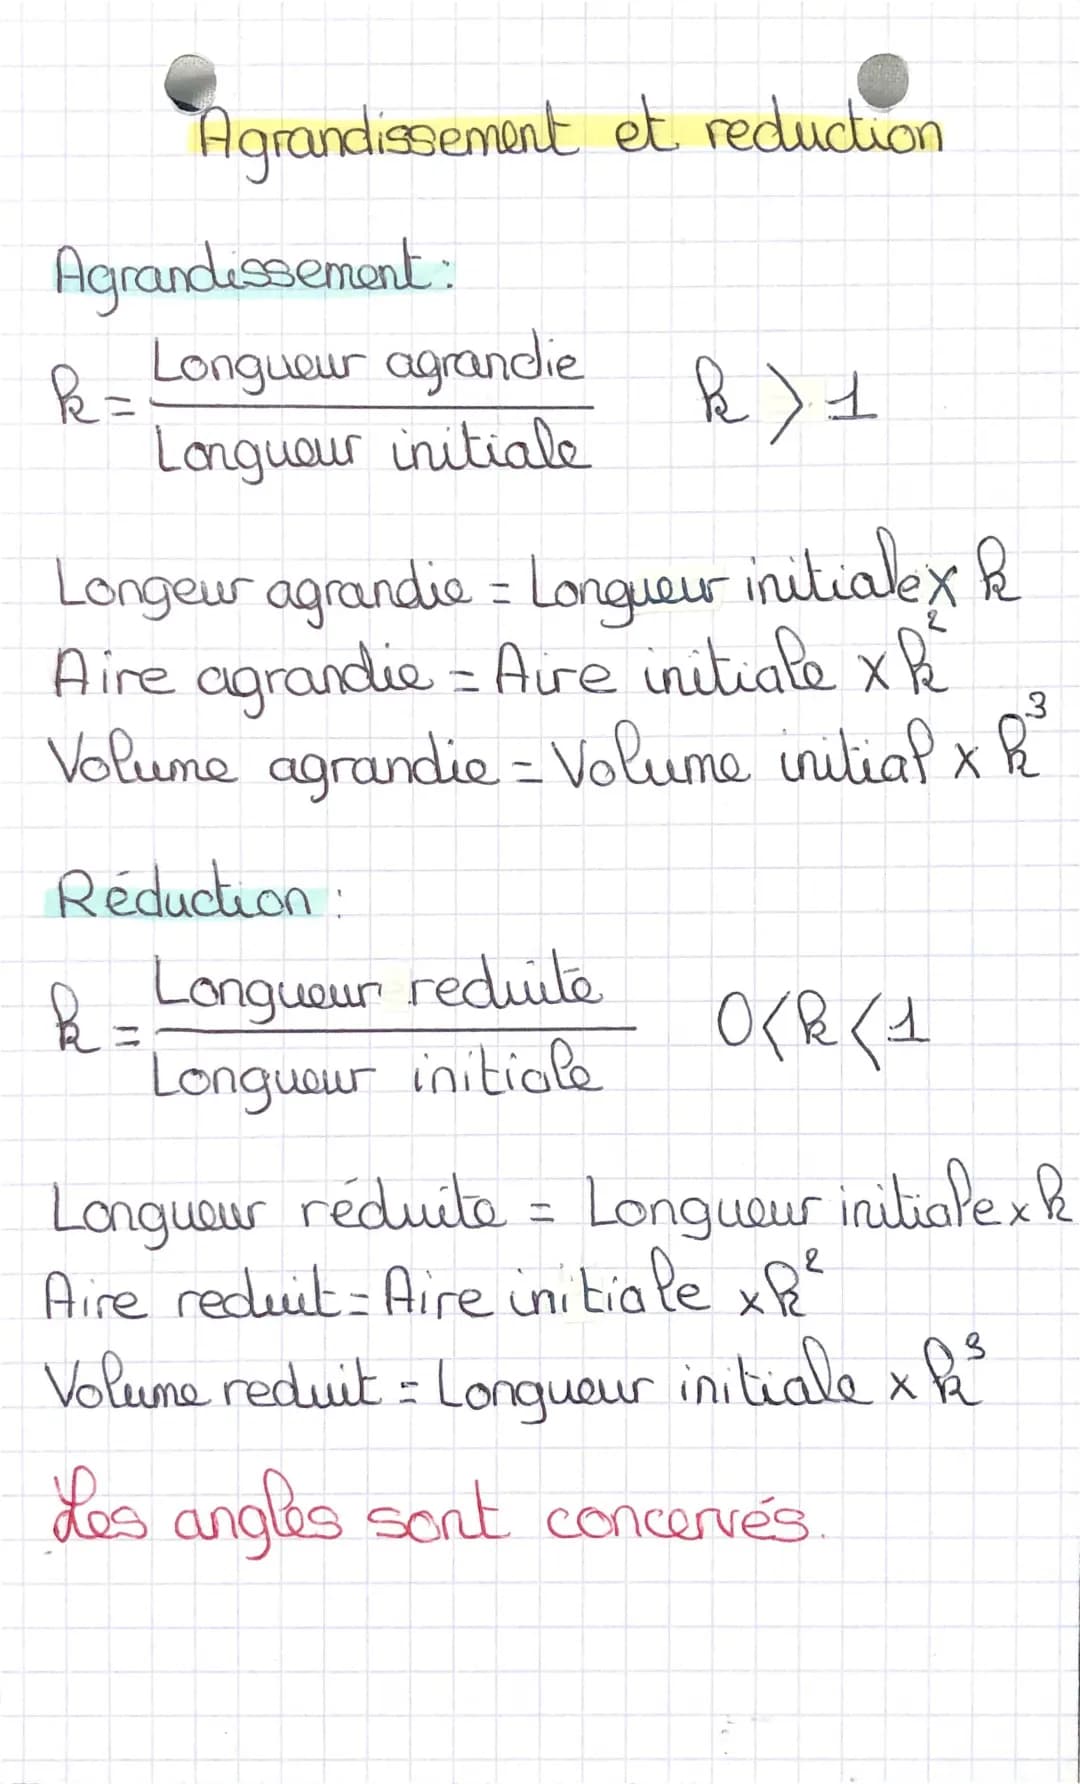 Agrandissement et reduction
Agrandissement :
k = Longueur agrandie / Longueur initiale    k > 1
Longeur agrandie = Longueur initiale x k
Aire agrandie = Aire initiale x k²
Volume agrandie = Volume initial x k³
Réduction :
k = Longueur reduite / Longueur initiale    0 < k < 1
Longueur réduite = Longueur initiale x k
Aire reduit = Aire initiale x k²
Volume reduit = Longueur initiale x k³
Les angles sont concervés.